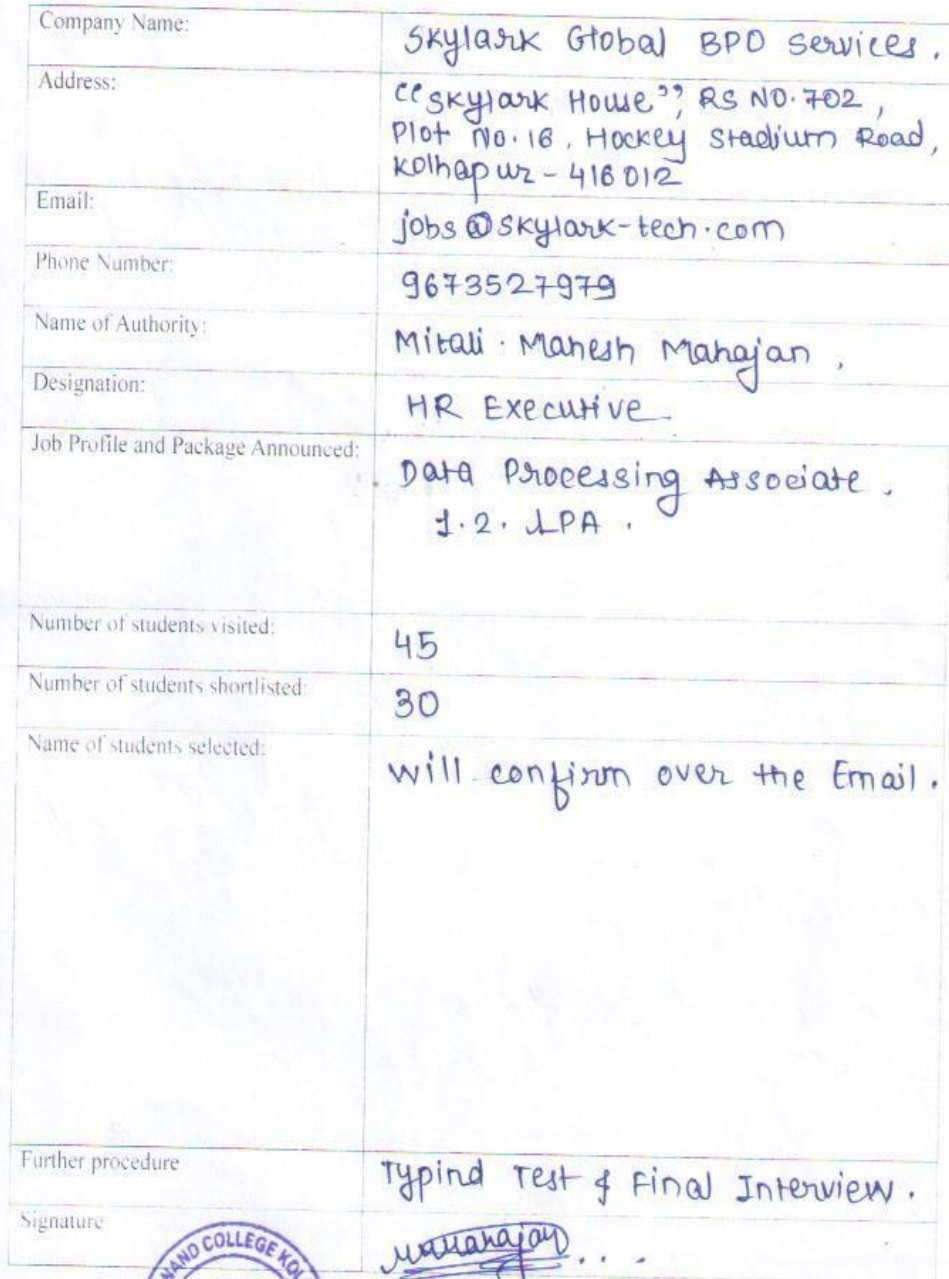 Company Name:
Skylark Global BPO Services.
Address:
“Skylark House”, RS NO.702,
Plot No.16, Hockey Stadium Road,
Kolhapur - 416 012
Email:
jobs@skylark-tech.com
Phone Number:
9673527979
Name of Authority:
Mitali. Mahesh Mahajan,
Designation:
HR Executive
Job Profile and Package Announced:
Data Processing Associate.
1.2. LPA.
Number of students visited:
45
Number of students shortlisted:
30
Name of students selected:
will confirm over the Email.
Further procedure
Typind Test & Final Interview.
Signature
COLLEGE